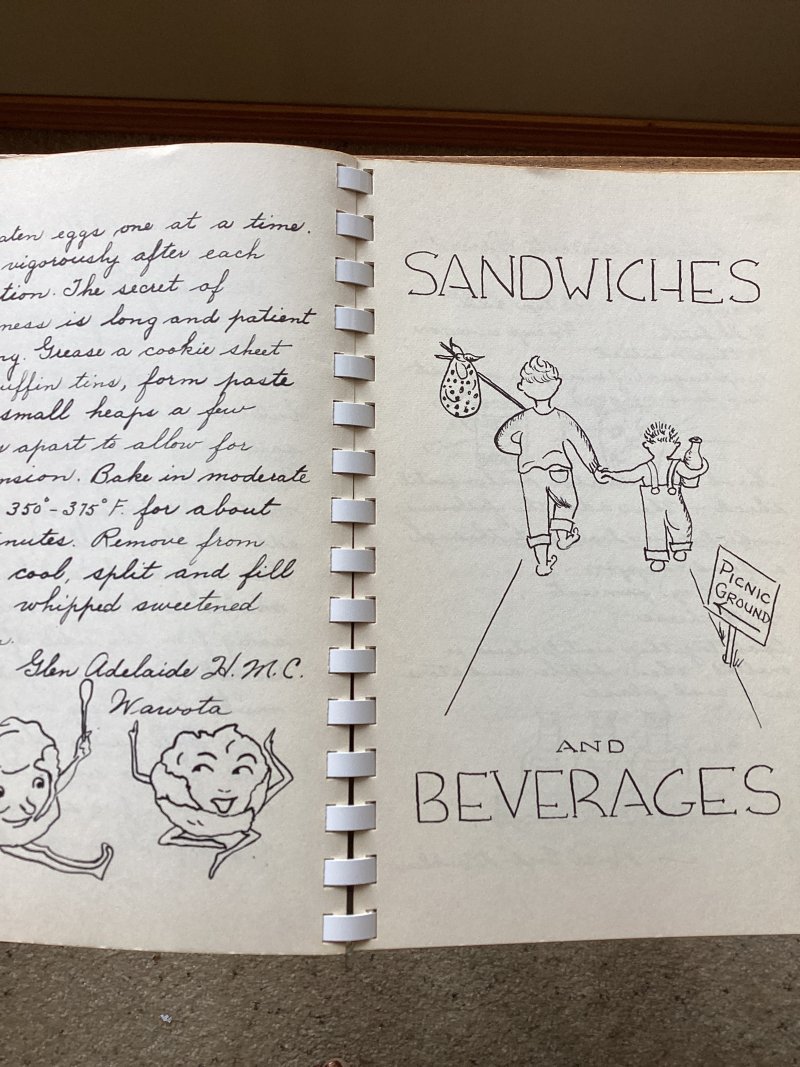 aten eggs one at a time.
vigorously after each
tion. The secret of
ness is long and patient
ng. Grease a cookie sheet
uffin tins, form paste
small heaps a few
apart to allow for
nsion. Bake in moderate
350°-375°F. for about
inutes. Remove from
cool, split and fill
whipped sweetened
Glen Adelaide H.M.C.
Wawota
SANDWICHES
PICNIC
GROUND
AND
BEVERAGES